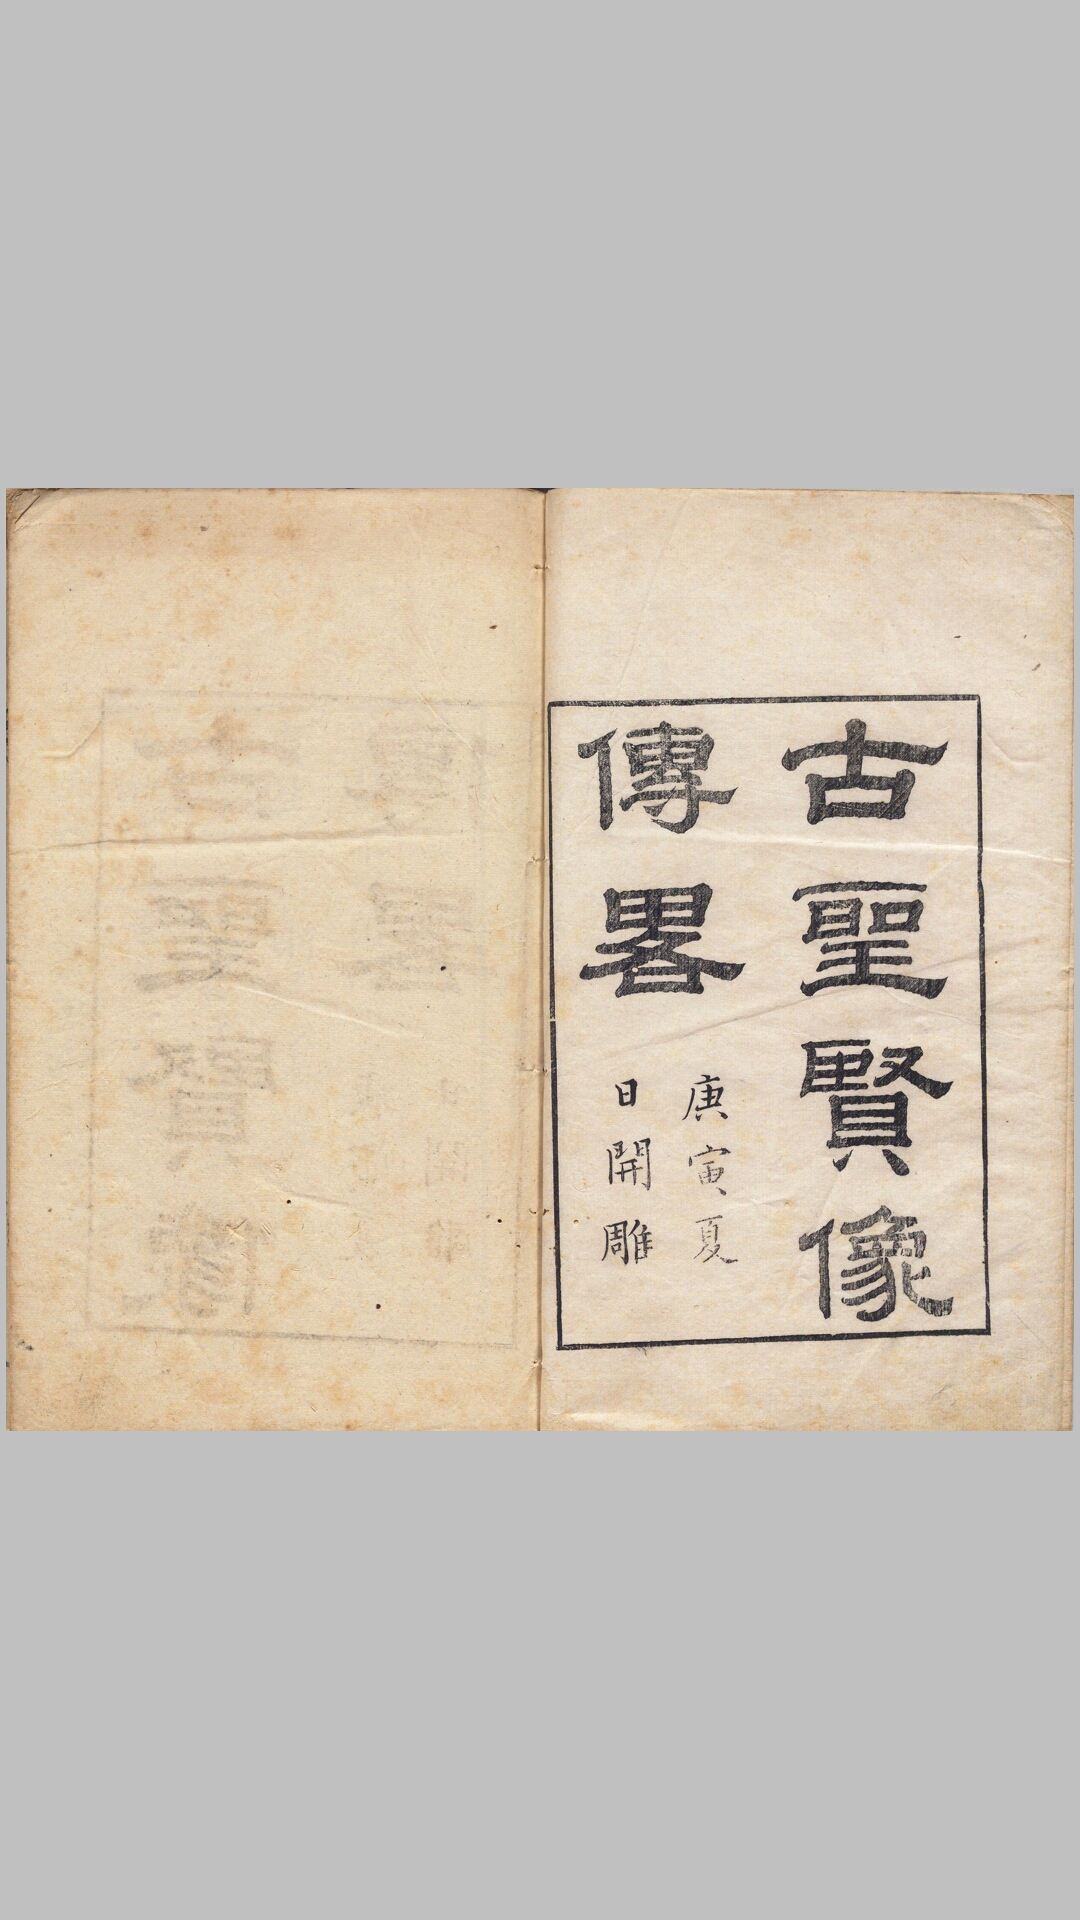 古聖賢像
傳畧
庚寅夏
日開雕